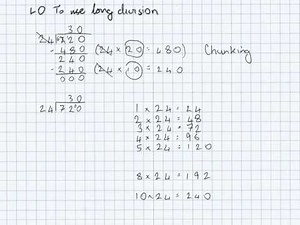 LO To use long division
30
24 720
- 480 (24 × 20 = 480) Chunking
240
- 240 (24 × 10 = 240
000
30
24 720
1 × 24 = 24
2 × 24 = 48
3 × 24 = 72
4 × 24 = 96
5 × 24 = 120
8 × 24 = 192
10 × 24 = 240